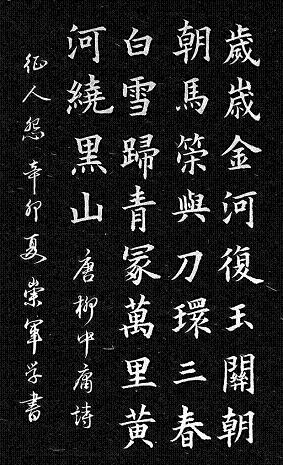 歲歲金河復玉關朝
朝馬策與刀環三春
白雪歸青冢萬里黄
河繞黑山
唐柳中庸詩
征人怨辛卯夏崇軍学書